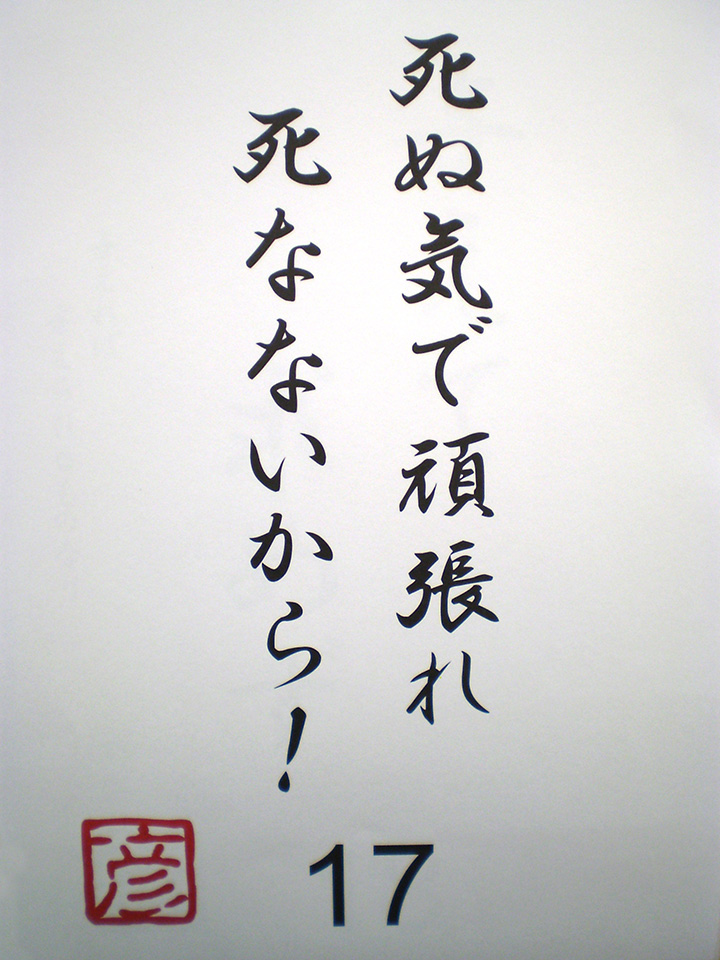 死ぬ気で頑張れ
死なないから!
彦
17